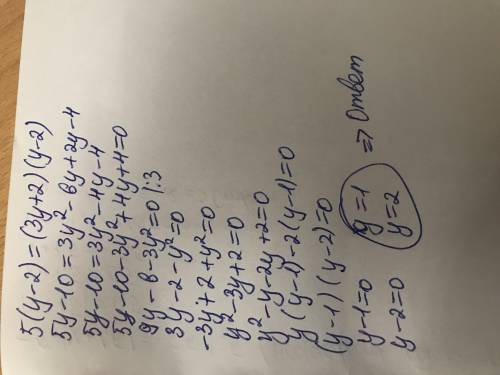 5(y-2) = (3y+2)(y-2)
5y-10 = 3y²-6y+2y-4
5y-10 = 3y²-4y-4
5y-10-3y²+4y+4=0
9y-6-3y²=0 |:3
3y-2-y²=0
-3y+2+y²=0
y²-3y+2=0
y²-y-2y+2=0
y(y-1)-2(y-1)=0
(y-1)(y-2)=0
y-1=0 y=1
y-2=0 y=2 => Ответ